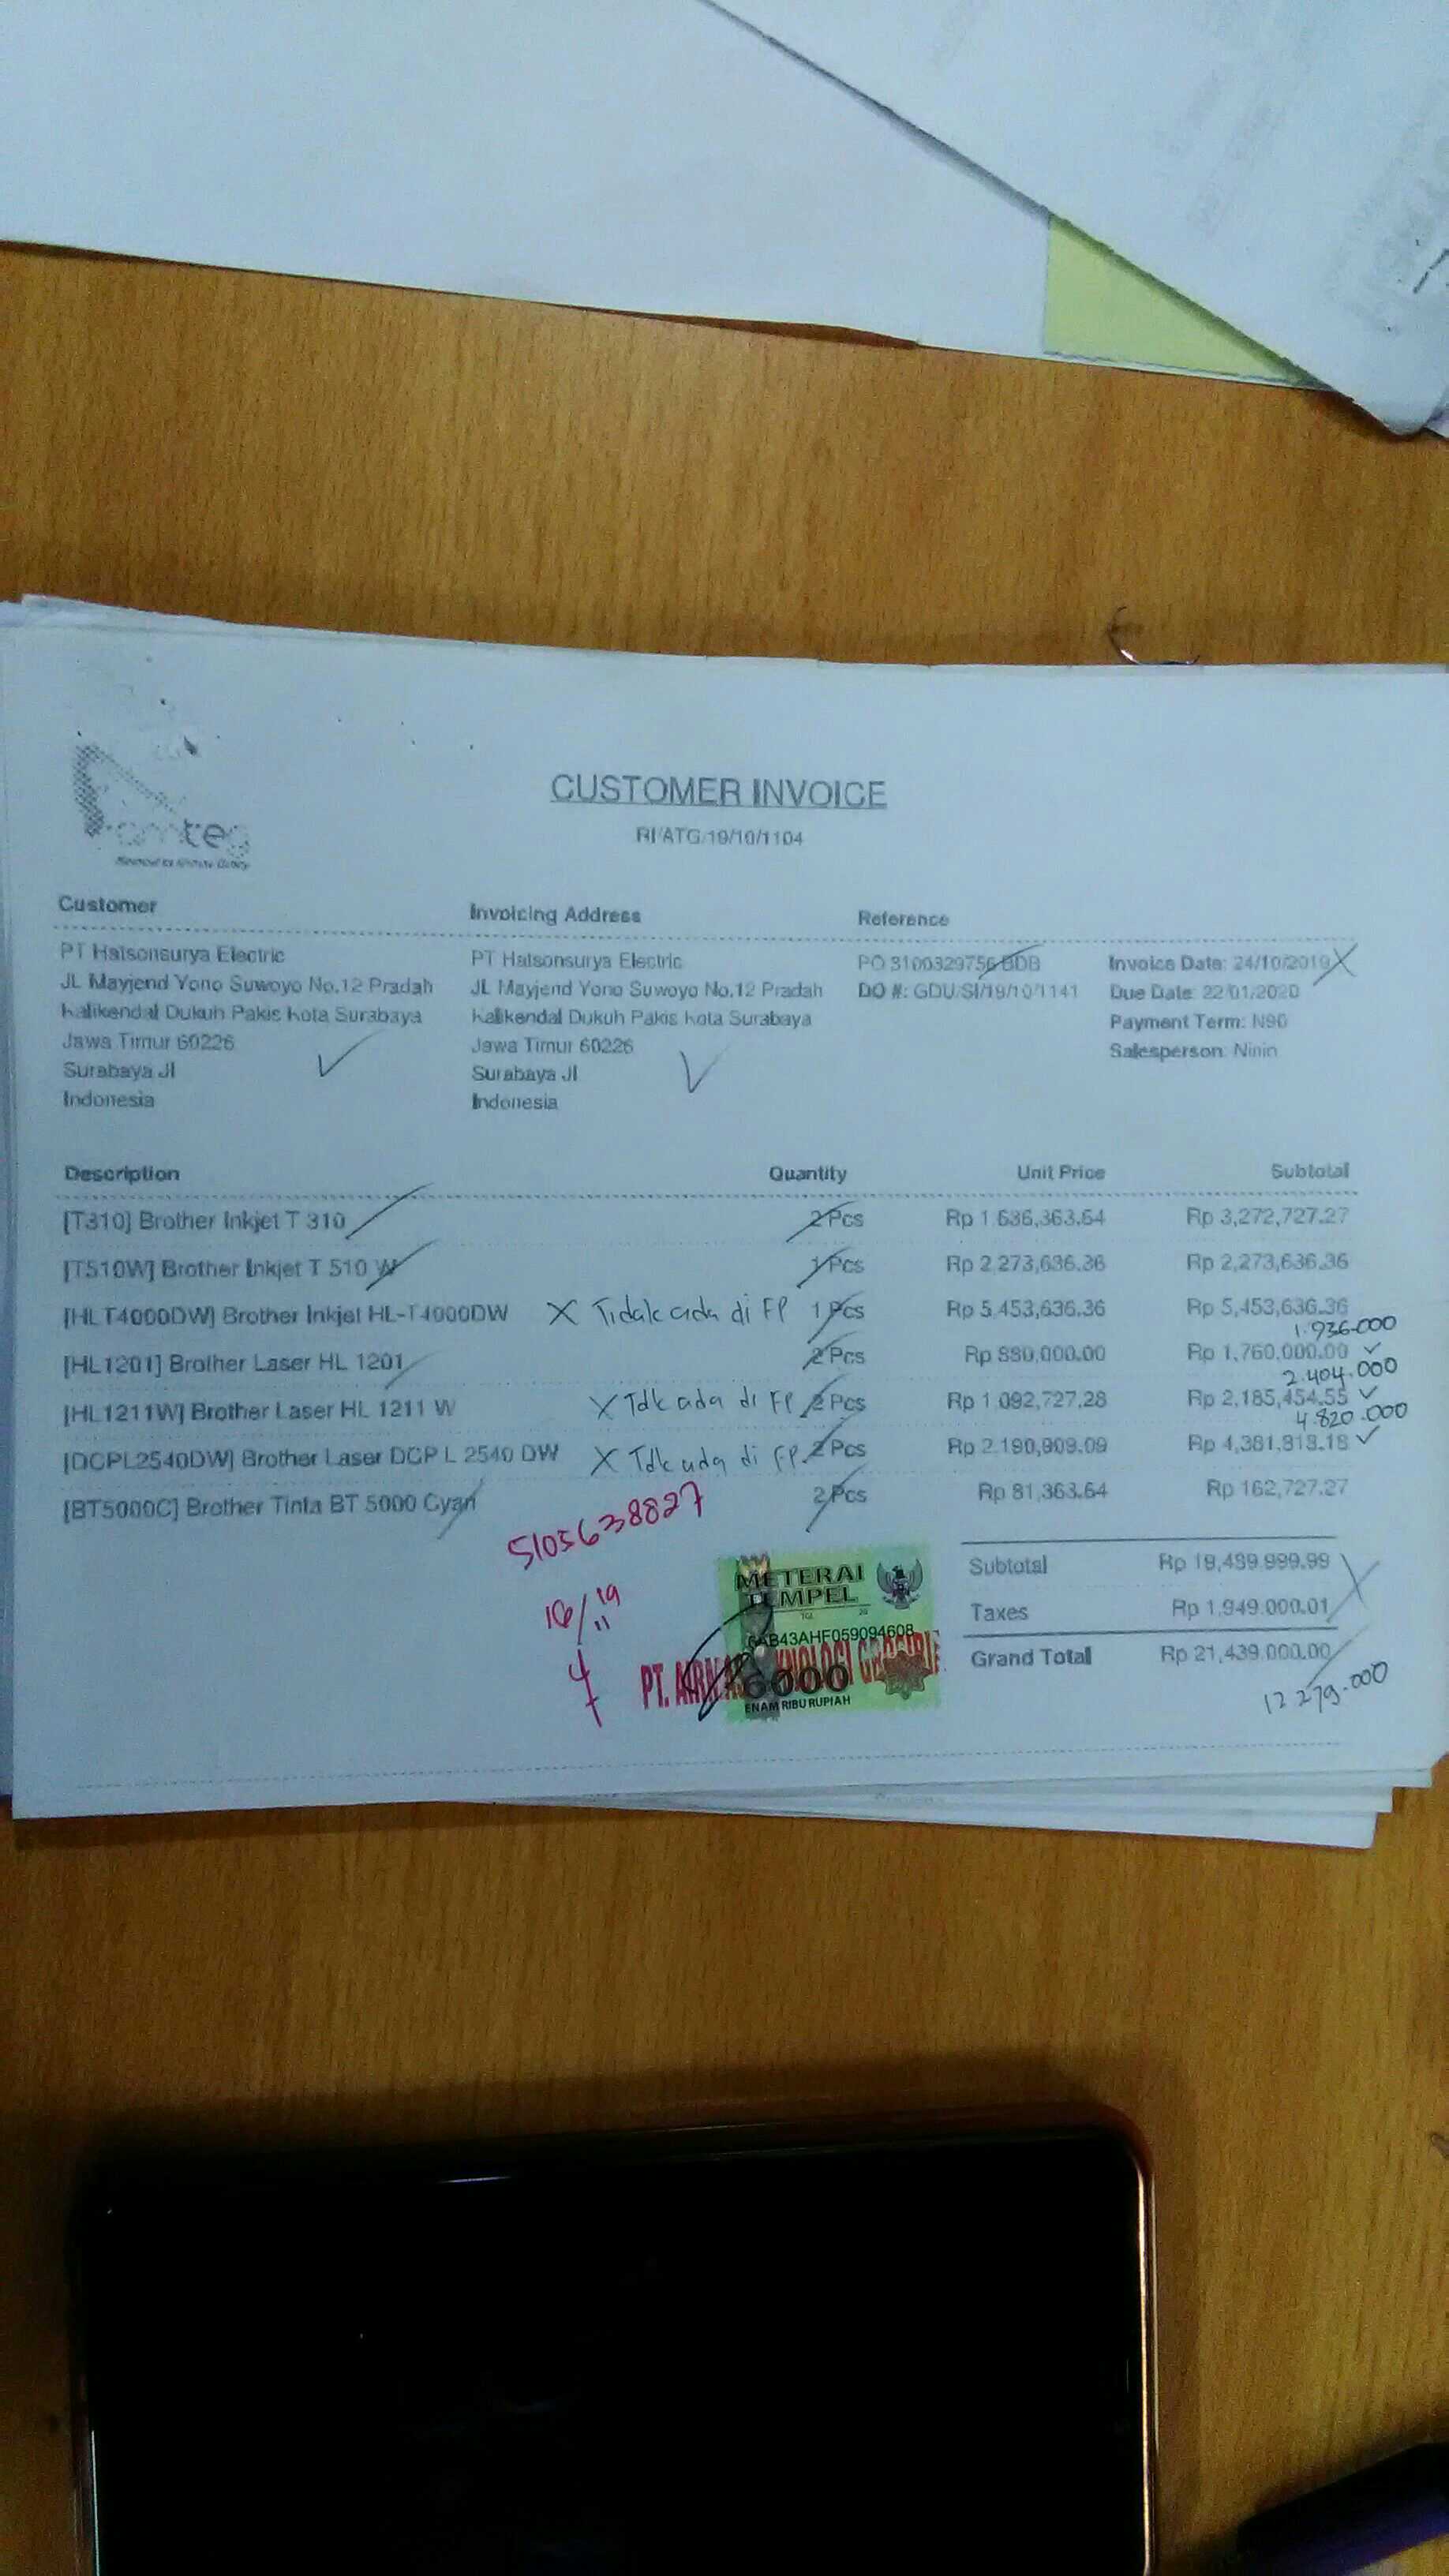 CUSTOMER INVOICE
RI/ATG/19/10/1104
Customer
Invoicing Address
Reference
PT Hatsonsurya Electric
JL Mayjend Yono Suwoyo No.12 Pradah
Kalikendal Dukuh Pakis Kota Surabaya
Jawa Timur 60226
Surabaya JI
Indonesia
PT Hatsonsurya Electric
JL Mayjend Yono Suwoyo No.12 Pradah
Kalikendal Dukuh Pakis Kota Surabaya
Jawa Timur 60226
Surabaya JI
Indonesia
PO 3100329756 BDB
DO #: GDU/SI/19/10/1141
Invoice Date: 24/10/2019
Due Date: 22/01/2020
Payment Term: N90
Salesperson: Ninin
Description Quantity Unit Price Subtotal
[T310] Brother Inkjet T 310 2 Pcs Rp 1,636,363.64 Rp 3,272,727.27
[T510W] Brother Inkjet T 510 W 1 Pcs Rp 2,273,636.36 Rp 2,273,636.36
[HLT4000DW] Brother Inkjet HL-T4000DW X Tidak ada di FP 1 Pcs Rp 5,453,636.36 Rp 5,453,636.36
1.936.000
[HL1201] Brother Laser HL 1201 2 Pcs Rp 880,000.00 Rp 1,760,000.00
2.404.000
[HL1211W] Brother Laser HL 1211 W X Tdk ada di FP 2 Pcs Rp 1,092,727.28 Rp 2,185,454.55
4.820.000
[DCPL2540DW] Brother Laser DCP L 2540 DW X Tdk ada di FP 2 Pcs Rp 2,190,909.09 Rp 4,381,818.18
[BT5000C] Brother Tinta BT 5000 Cyan 2 Pcs Rp 81,363.64 Rp 162,727.27
5105638827
Subtotal Rp 19,489,999.99
Taxes Rp 1,949,000.01
Grand Total Rp 21,439,000.00
12.279.000
METERAI
TEMPEL
6AB43AHF059094608
6000
ENAM RIBU RUPIAH